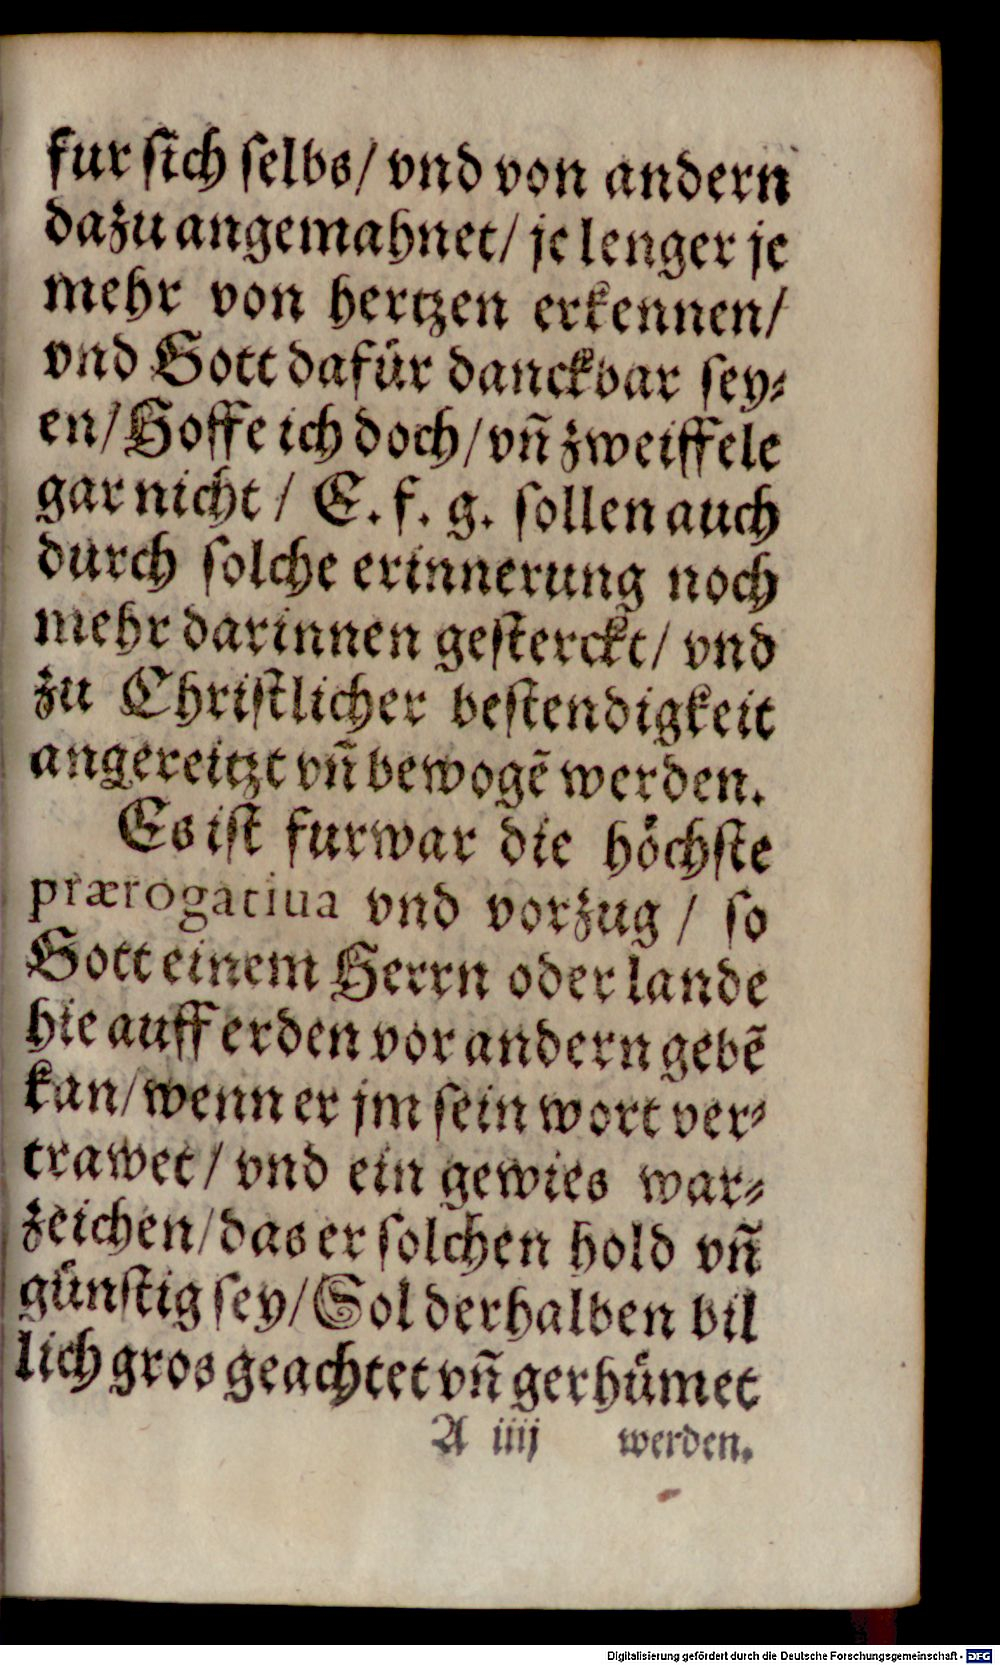 fur sich selbs/ vnd von andern
dazu angemahnet/ je lenger je
mehr von hertzen erkennen/
vnd Gott dafür danckbar sey⸗
en/ Hoffe ich doch/ vñ zweiffele
gar nicht/ E. f. g. sollen auch
durch solche erinnerung noch
mehr darinnen gesterckt/ vnd
zu Christlicher bestendigkeit
angereitzt vñ bewogẽ werden.
Es ist furwar die höchste
prærogatiua vnd vorzug/ so
Gott einem Herrn oder lande
hie auff erden vor andern gebẽ
kan/ wenn er jm sein wort ver⸗
trawet/ vnd ein gewies war⸗
zeichen/ das er solchen hold vñ
günstig sey/ Sol derhalben bil
lich gros geachtet vñ gerhümet
A iiij werden.
Digitalisierung gefördert durch die Deutsche Forschungsgemeinschaft - DFG